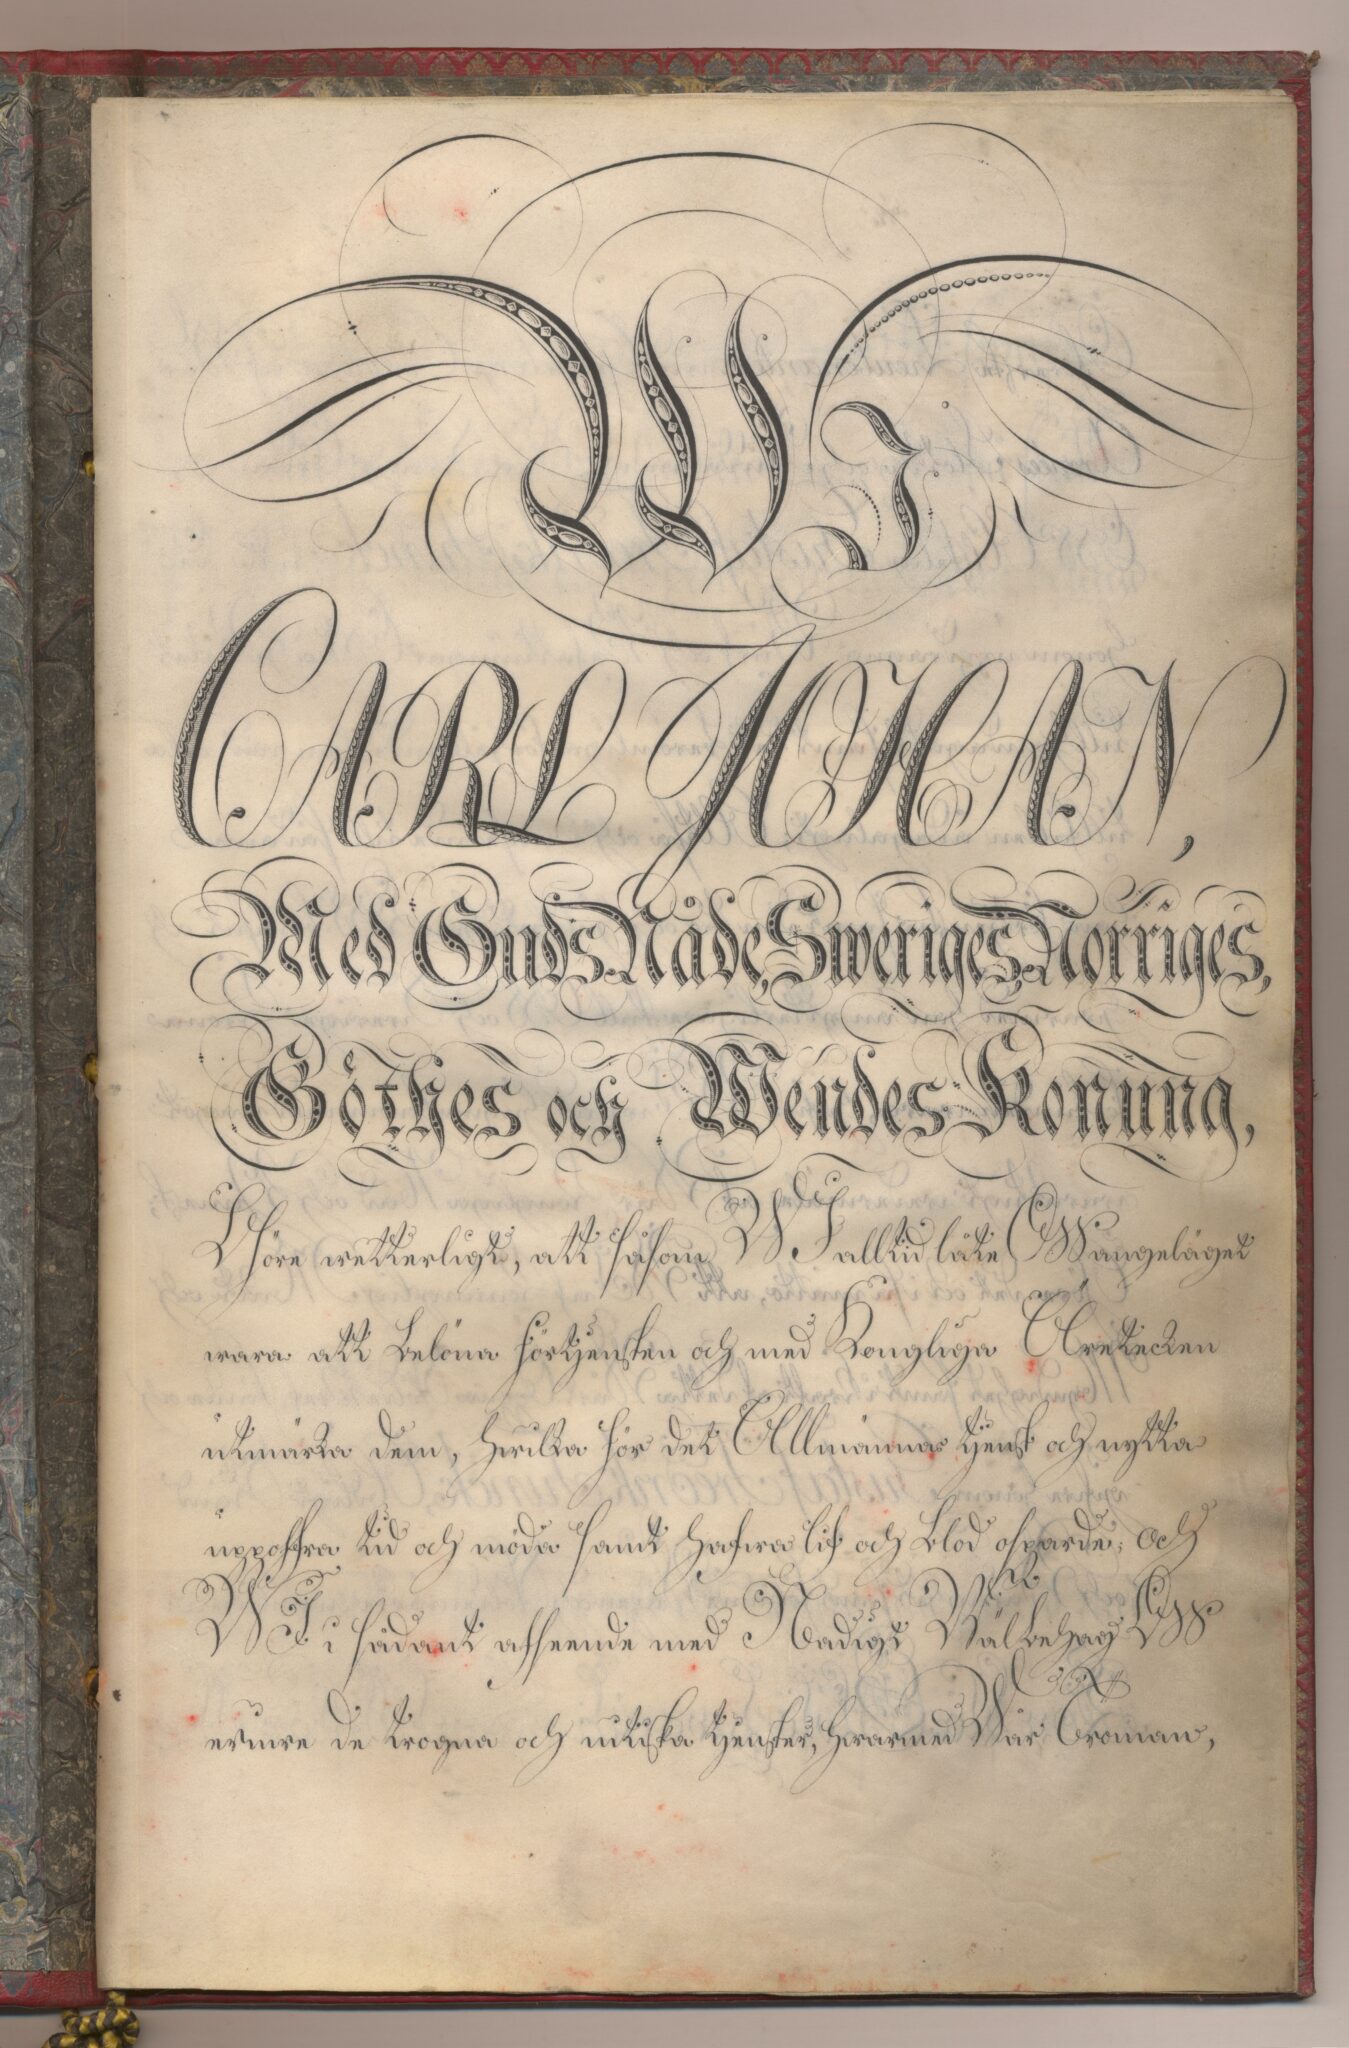 Wi
CARL JOHAN,
Med Guds Nåde, Sweriges, Norriges,
Göthes och Wendes Konung,
Göre wetterligt, att såsom WI alltid låte Oss angeläget
wara att belöna förtjensten och med Kongliga Äretecken
utmärka dem, hwilka för det Allmänna tjenst och nytta
uppoffra tid och möda samt hafwa lif och blod ospardt; och
WI i sådant afseende med Nådigt Wälbehag Oss
erinre de trogna och nitiska tjenster, hwarmed Wår Troman,